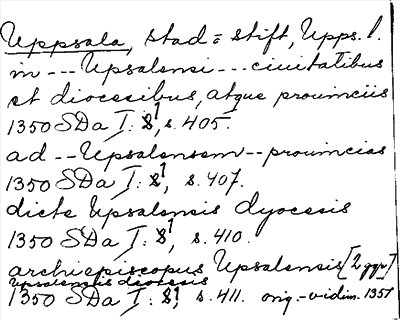 Uppsala, stad = stift, Upps. l.
in --- Upsalensi --- ciuitatibus
et diocesibus, atque prouinciis
1350 SDa I: 8¹, s. 405.
ad -- Upsalensem -- prouincias
1350 SDa I: 8¹, s. 407.
dicte Upsalensis dyocesis
1350 SDa I: 8¹, s. 410.
archiepiscopus Upsalensis [2 ggr]
Upsalensis diocesis
1350 SDa I: 8¹, s. 411. orig.-vidim. 1351